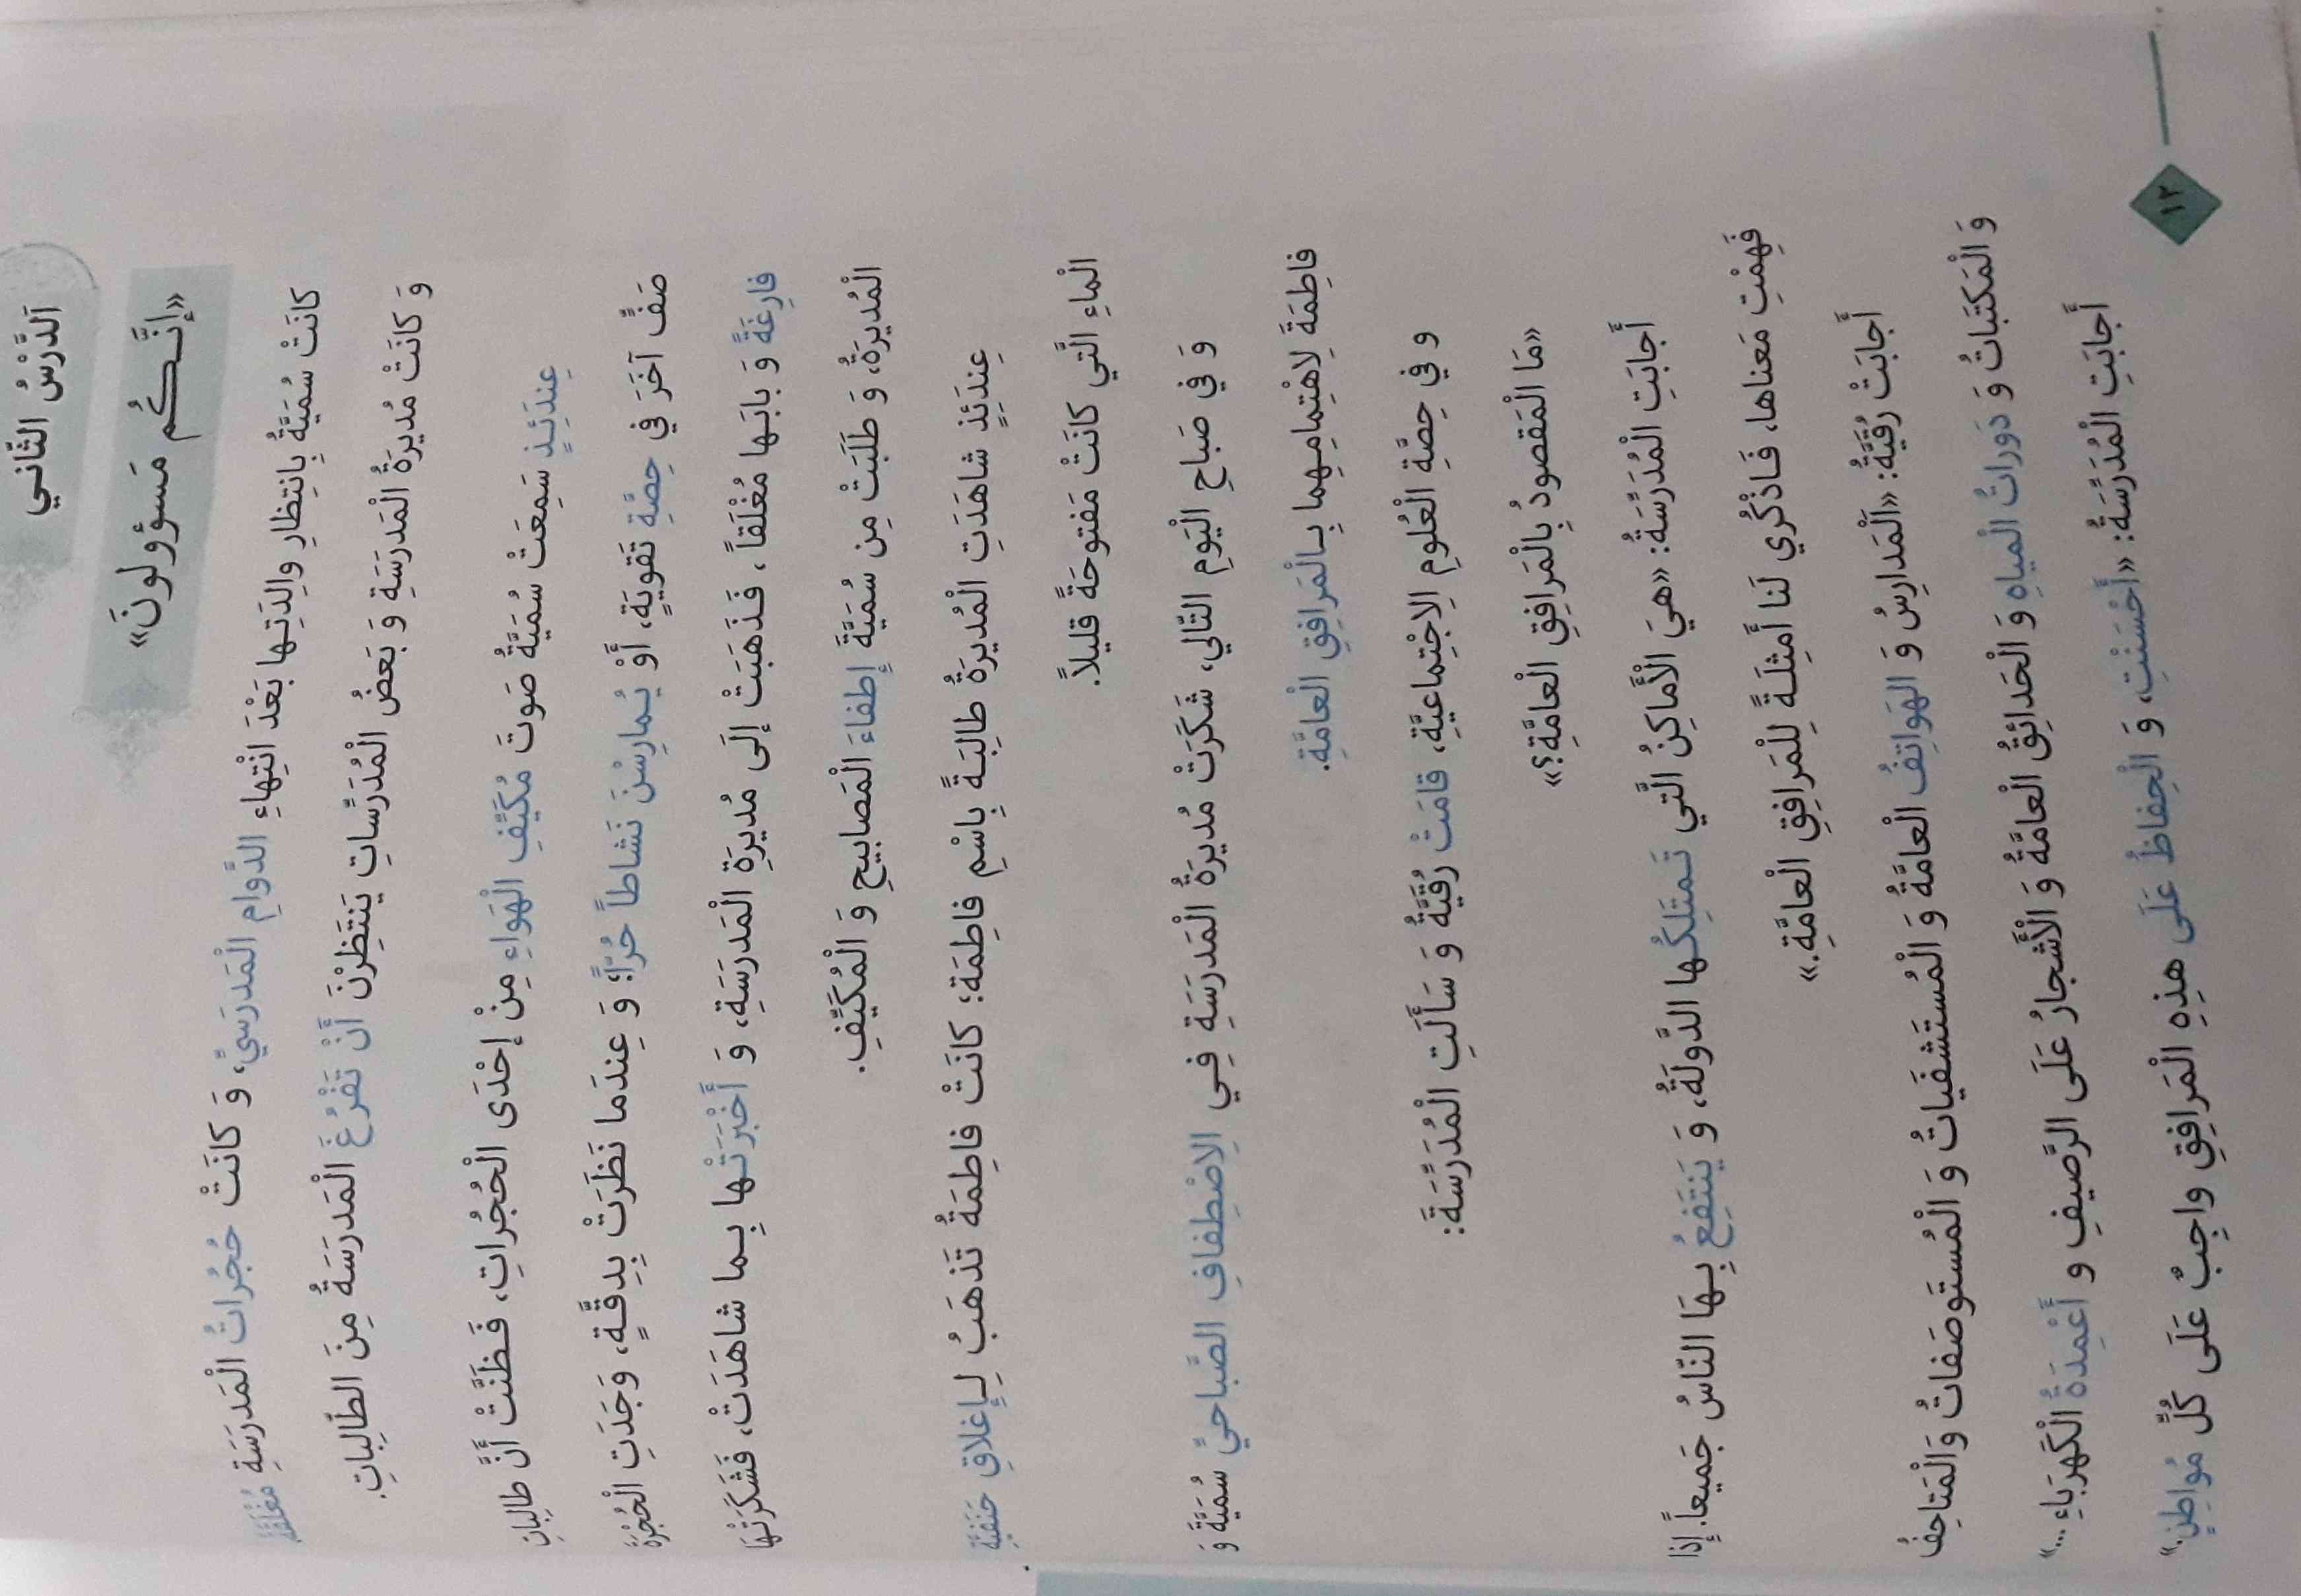 اَلدَّرْسُ الثّاني
«إنَّـكُم مَسؤولونَ»
كانَتْ سُمَيَّةُ بِانتِظارِ والِدَتِها بَعْدَ انْتِهاءِ الدَّوامِ الْمَدرَسيِّ، وَ كانَتْ حُجُراتُ الْمَدرَسَةِ مُغْلَقَةً
وَ كانَتْ مُديرَةُ الْمَدرَسَةِ وَ بَعضُ الْمُدَرِّساتِ يَنتَظِرْنَ أَنْ تَفْرُغَ الْمَدرَسَةُ مِنَ الطّالِباتِ.
عِندَئِذٍ سَمِعَتْ سُمَيَّةُ صَوتَ مُكَيِّفِ الْهَواءِ مِنْ إحْدَى الْحُجُراتِ، فَظَنَّتْ أَنَّ طالِباتِ
صَفٍّ آخَرَ في حِصَّةِ تَقويَةٍ، أَوْ يُمارِسْنَ نَشاطاً حُرّاً؛ وَ عِندَما نَظَرَتْ بِدِقَّـةٍ، وَجَدَتِ الْحُجْرَةَ
فارِغَةً وَ بابَها مُغْلَقاً، فَذَهَبَتْ إلَى مُديرَةِ الْمَدرَسَةِ، وَ أَخْبَرَتْها بِـما شاهَدَتْ، فَشَكَرَتْهَا
الْمُديرَةُ، وَ طَلَبَتْ مِن سُمَيَّةَ إطفاءَ الْمَصابيحِ وَ الْمُكَيِّفِ.
عِندَئِذٍ شاهَدَتِ الْمُديرَةُ طالِبَـةً بِاسْمِ فاطِمَة؛ كانَتْ فاطِمَةُ تَذهَبُ لِـإغلاقِ حَنَفيَّةِ
الْماءِ الَّتي كانَتْ مَفتوحَةً قليلاً.
وَ في صَباحِ الْيَومِ التّالي، شَكَرَتْ مُديرَةُ الْمَدرَسَةِ فِـي الِاصْطِفافِ الصَّباحيِّ سُمَيَّةَ وَ
فاطِمَةَ لِاهْتِمامِـهِما بِـالْمَرافِقِ الْعامَّةِ.
و في حِصَّةِ الْعُلومِ الِاجْتِماعيَّةِ، قامَتْ رُقَيَّةُ وَ سَأَلَتِ الْمُدَرِّسَةَ:
«مَا الْمَقصودُ بِالْمَرافِقِ الْعامَّةِ؟»
أَجابَتِ الْمُدَرِّسَةُ: «هيَ الْأَماكِنُ الَّتي تَـمتَلِكُها الدَّولَةُ، وَ يَنتَفِعُ بِـهَا النّاسُ جَميعاً. إذا
فَهِمْتِ مَعناها، فَـاذْكُري لَنا أَمثِلَـةً لِلْمَرافِقِ الْعامَّةِ.»
أَجابَتْ رُقَيَّةُ: «اَلْمَدارِسُ وَ الهَواتِفُ الْعامَّةُ وَ الْمُستَشفَياتُ وَ الْمُستَوصَفاتُ وَالْمَتاحِفُ
وَ الْمَكتَباتُ وَ دَوراتُ الْمياهِ وَ الْحَدائِقُ الْعامَّةُ وَ الْأَشْجارُ عَلَى الرَّصيفِ و أَعْمِدَةُ الْكَهرَباءِ ...»
أَجابَتِ الْمُدَرِّسَةُ: «أَحْسَنْتِ، وَ الْحِفاظُ عَلَى هٰذِهِ الْمَرافِقِ واجِبٌ عَلَى كُلِّ مُواطِنٍ.»
١٢